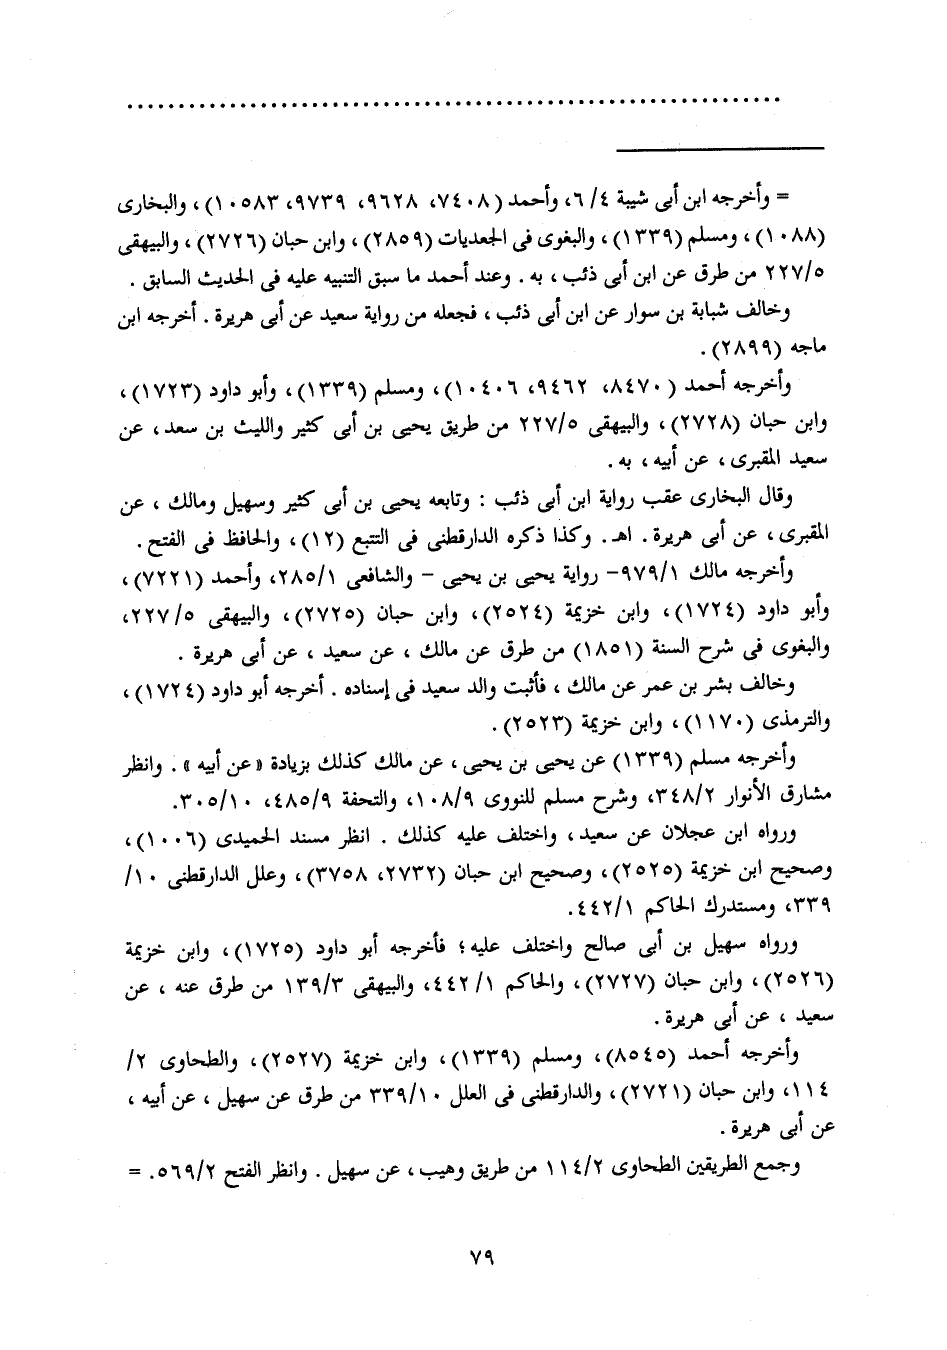 ................................................................
= وأخرجه ابن أبى شيبة ٤/ ٦، وأحمد (٧٤٠٨، ٩٦٢٨، ٩٧٣٩، ١٠٥٨٣)، والبخارى
(١٠٨٨)، ومسلم (١٣٣٩)، والبغوى فى الجعديات (٢٨٥٩)، وابن حبان (٢٧٢٦)، والبيهقى
٢٢٧/٥ من طرق عن ابن أبى ذئب، به. وعند أحمد ما سبق التنبيه عليه فى الحديث السابق.
وخالف شبابة بن سوار عن ابن أبى ذئب، فجعله من رواية سعيد عن أبى هريرة. أخرجه ابن
ماجه (٢٨٩٩).
وأخرجه أحمد (٨٤٧٠، ٩٤٦٢، ١٠٤٠٦)، ومسلم (١٣٣٩)، وأبو داود (١٧٢٣)،
وابن حبان (٢٧٢٨)، والبيهقى ٢٢٧/٥ من طريق يحيى بن أبى كثير والليث بن سعد، عن
سعيد المقبرى، عن أبيه، به.
وقال البخارى عقب رواية ابن أبى ذئب: وتابعه يحيى بن أبى كثير وسهيل ومالك، عن
المقبرى، عن أبى هريرة. اهـ. وكذا ذكره الدارقطنى فى التتبع (١٢)، والحافظ فى الفتح.
وأخرجه مالك ٩٧٩/١- رواية يحيى بن يحيى - والشافعى ٢٨٥/١، وأحمد (٧٢٢١)،
وأبو داود (١٧٢٤)، وابن خزيمة (٢٥٢٤)، وابن حبان (٢٧٢٥)، والبيهقى ٢٢٧/٥،
والبغوى فى شرح السنة (١٨٥١) من طرق عن مالك، عن سعيد، عن أبى هريرة.
وخالف بشر بن عمر عن مالك، فأثبت والد سعيد فى إسناده. أخرجه أبو داود (١٧٢٤)،
والترمذى (١١٧٠)، وابن خزيمة (٢٥٢٣).
وأخرجه مسلم (١٣٣٩) عن يحيى بن يحيى، عن مالك كذلك بزيادة «عن أبيه». وانظر
مشارق الأنوار ٣٤٨/٢، وشرح مسلم للنووى ١٠٨/٩، والتحفة ٤٨٥/٩، ٣٠٥/١٠.
ورواه ابن عجلان عن سعيد، واختلف عليه كذلك. انظر مسند الحميدى (١٠٠٦)،
وصحيح ابن خزيمة (٢٥٢٥)، وصحيح ابن حبان (٢٧٣٢، ٣٧٥٨)، وعلل الدارقطنى ١٠/
٣٣٩، ومستدرك الحاكم ٤٤٢/١.
ورواه سهيل بن أبى صالح واختلف عليه؛ فأخرجه أبو داود (١٧٢٥)، وابن خزيمة
(٢٥٢٦)، وابن حبان (٢٧٢٧)، والحاكم ٤٤٢/١، والبيهقى ١٣٩/٣ من طرق عنه، عن
سعيد، عن أبى هريرة.
وأخرجه أحمد (٨٥٤٥)، ومسلم (١٣٣٩)، وابن خزيمة (٢٥٢٧)، والطحاوى ٢/
١١٤، وابن حبان (٢٧٢١)، والدارقطنى فى العلل ٣٣٩/١٠ من طرق عن سهيل، عن أبيه،
عن أبى هريرة.
وجمع الطريقين الطحاوى ١١٤/٢ من طريق وهيب، عن سهيل. وانظر الفتح ٥٦٩/٢. =
٧٩